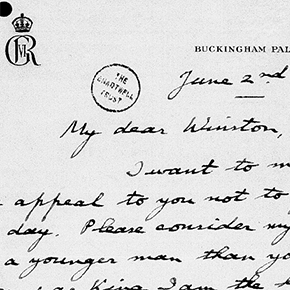 GVIR
BUCKINGHAM PAL
June 2nd
THE CHARTWELL TRUST
My dear Winston,
I want to m
appeal to you not to
day. Please consider my
a younger man than yo
as King I am the